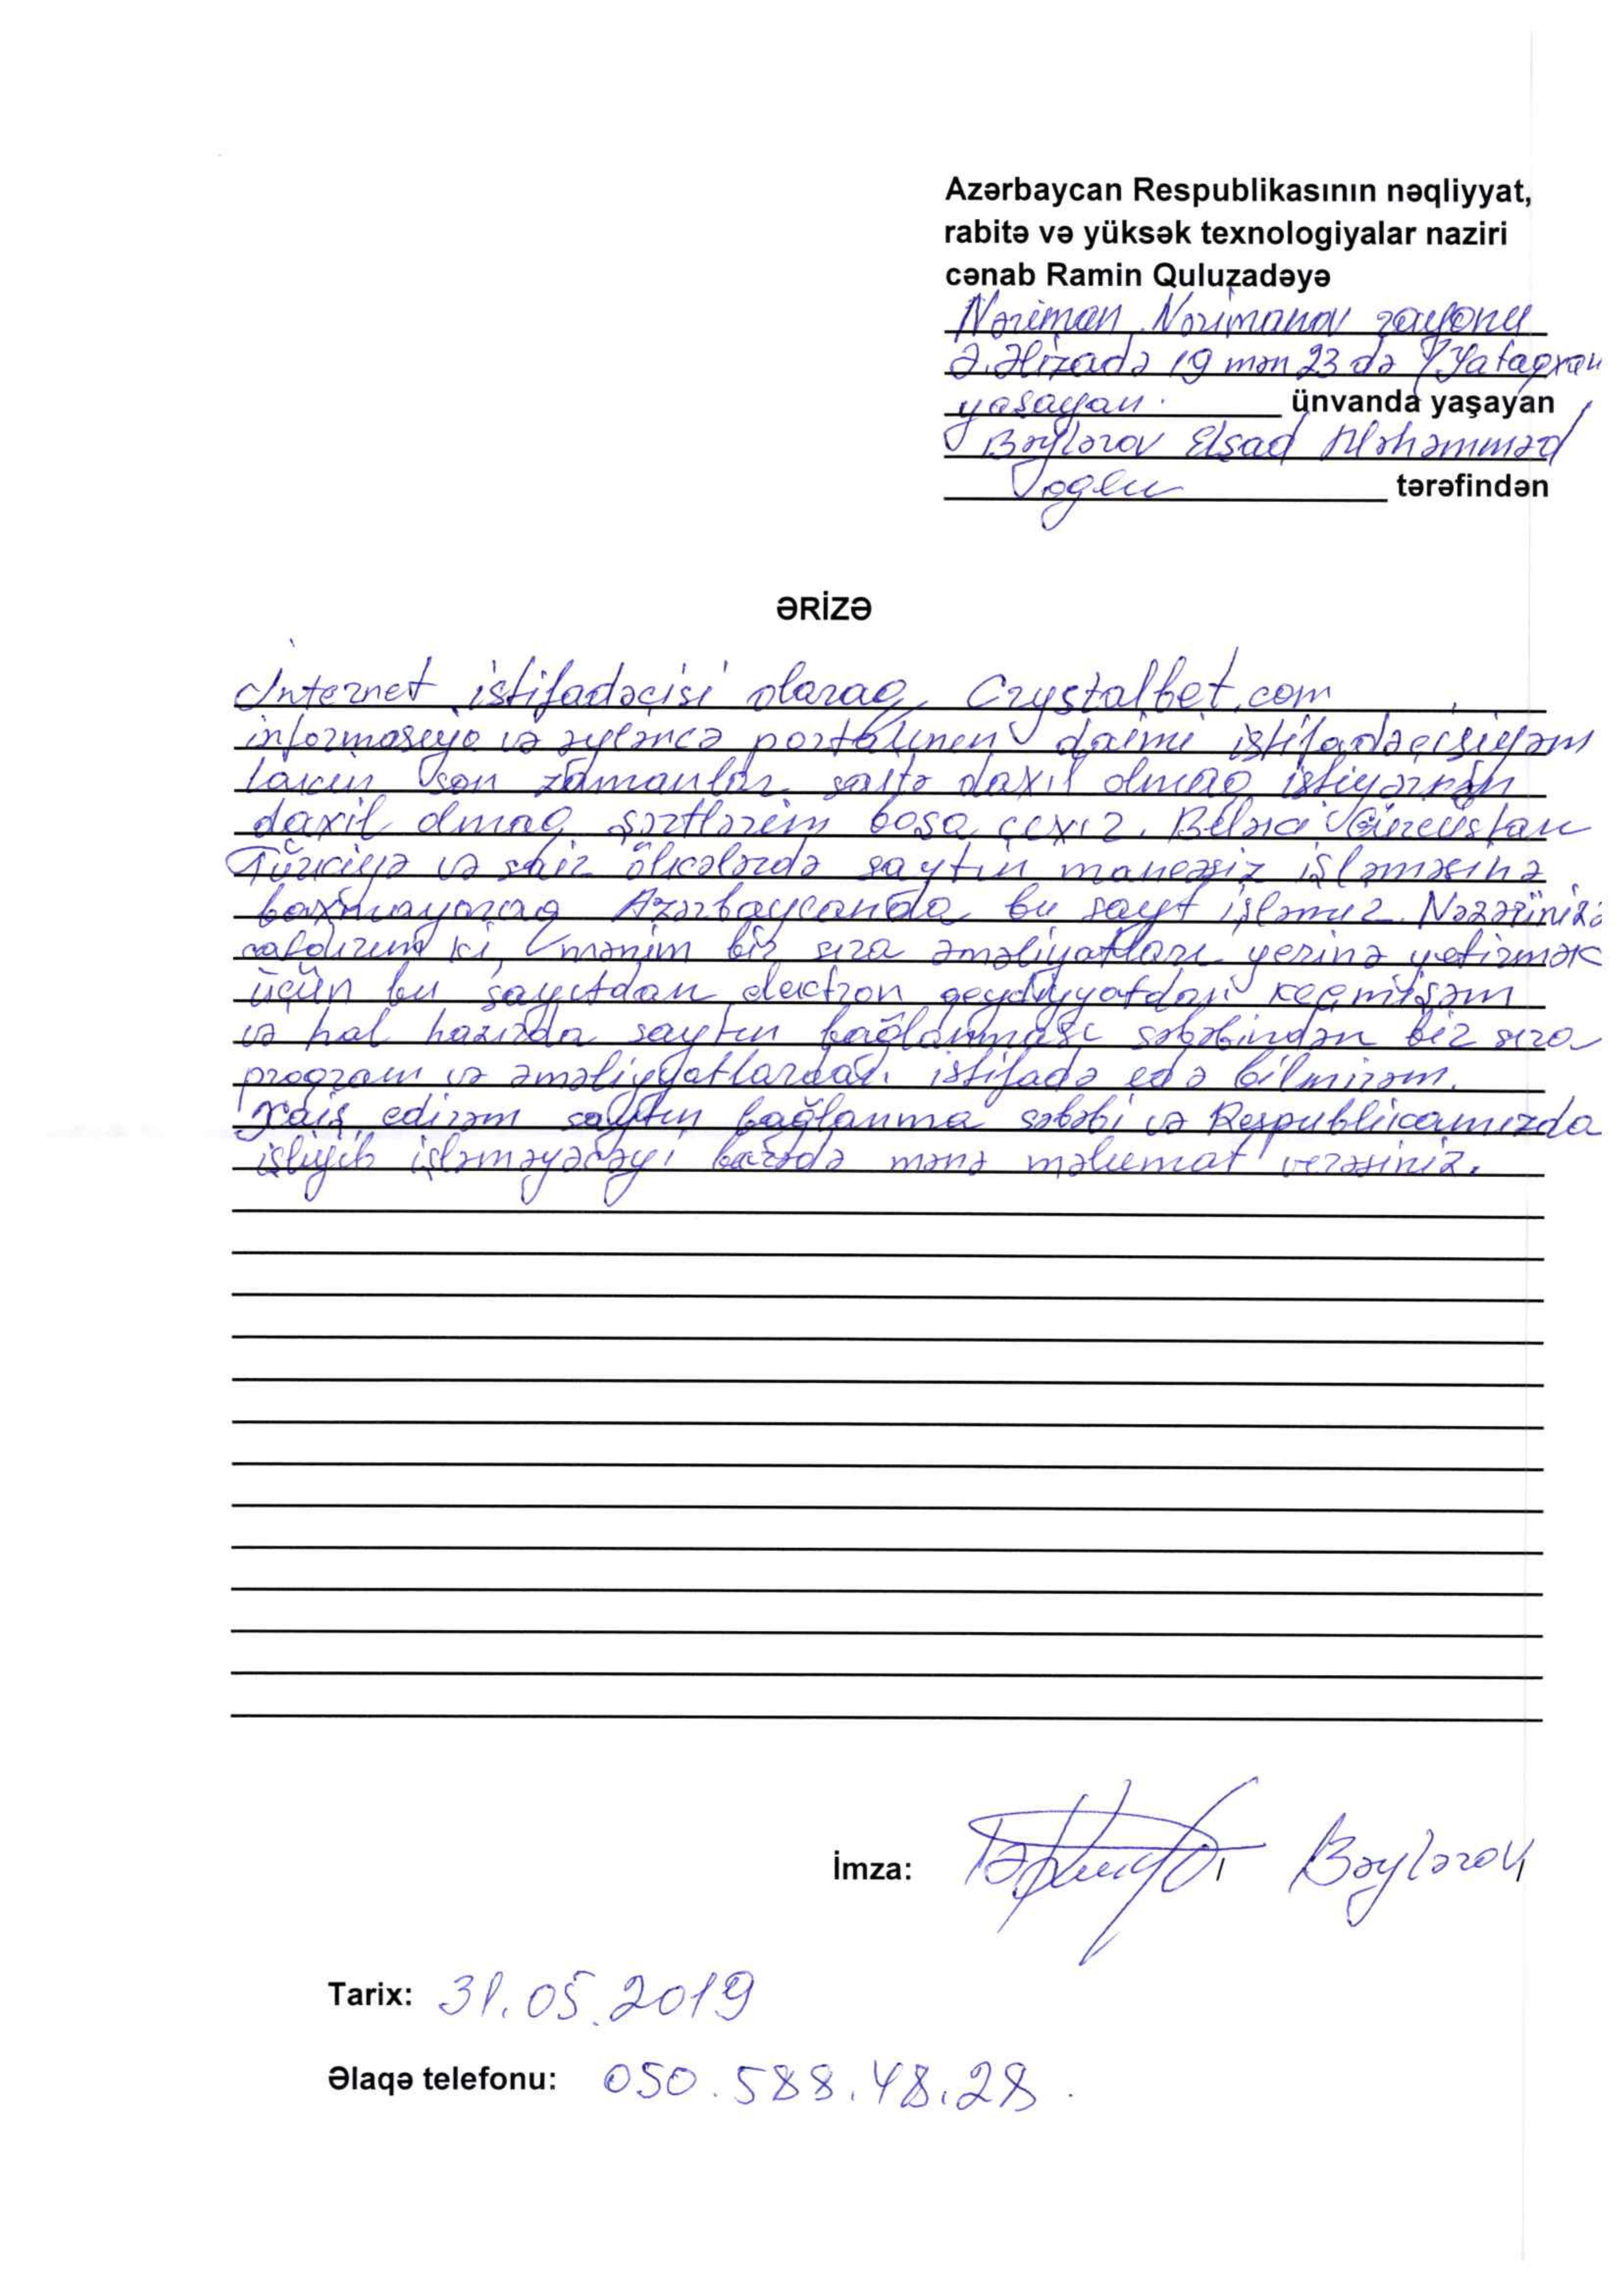 Azərbaycan Respublikasının nəqliyyat,
rabitə və yüksək texnologiyalar naziri
cənab Ramin Quluzadəyə
Nəriman Nərimanov rayonu
Ə.Əlizadə 19 mən 23 də Yataqxan
yaşayan. ünvanda yaşayan
Bəylərov Elşad Məhəmməd
oglu tərəfindən
ƏRİZƏ
İnternet istifadəçisi olaraq Crystalbet.com
informasiya və əyləncə portalının daimi istifadəçisiyəm
lakin son zamanlar saytə daxil olmaq istiyərkən
daxil olmaq şərtlərim boşa çıxır. Beləki Gürcüstan
Türkiyə və sair ölkələrdə saytın maneəsiz işləməsinə
baxmayaraq Azərbaycanda bu sayt işləmir. Nəzərinizə
çatdırım ki, mənim bir sıra əməliyatları yerinə yetirmək
üçün bu saytdan electron qeydiyyatdan keçmişəm
və hal hazırda saytın bağlanması səbəbindən bir sıra
program və əməliyyatlardan istifadə edə bilmirəm.
Xaiş edirəm saytın bağlanma səbəbi və Respublikamızda
işləyib işləməyəcəyi barədə mənə məlumat verəsiniz.
İmza: Bəylərov
Tarix: 31.05.2019
Əlaqə telefonu: 050.588.48.28.